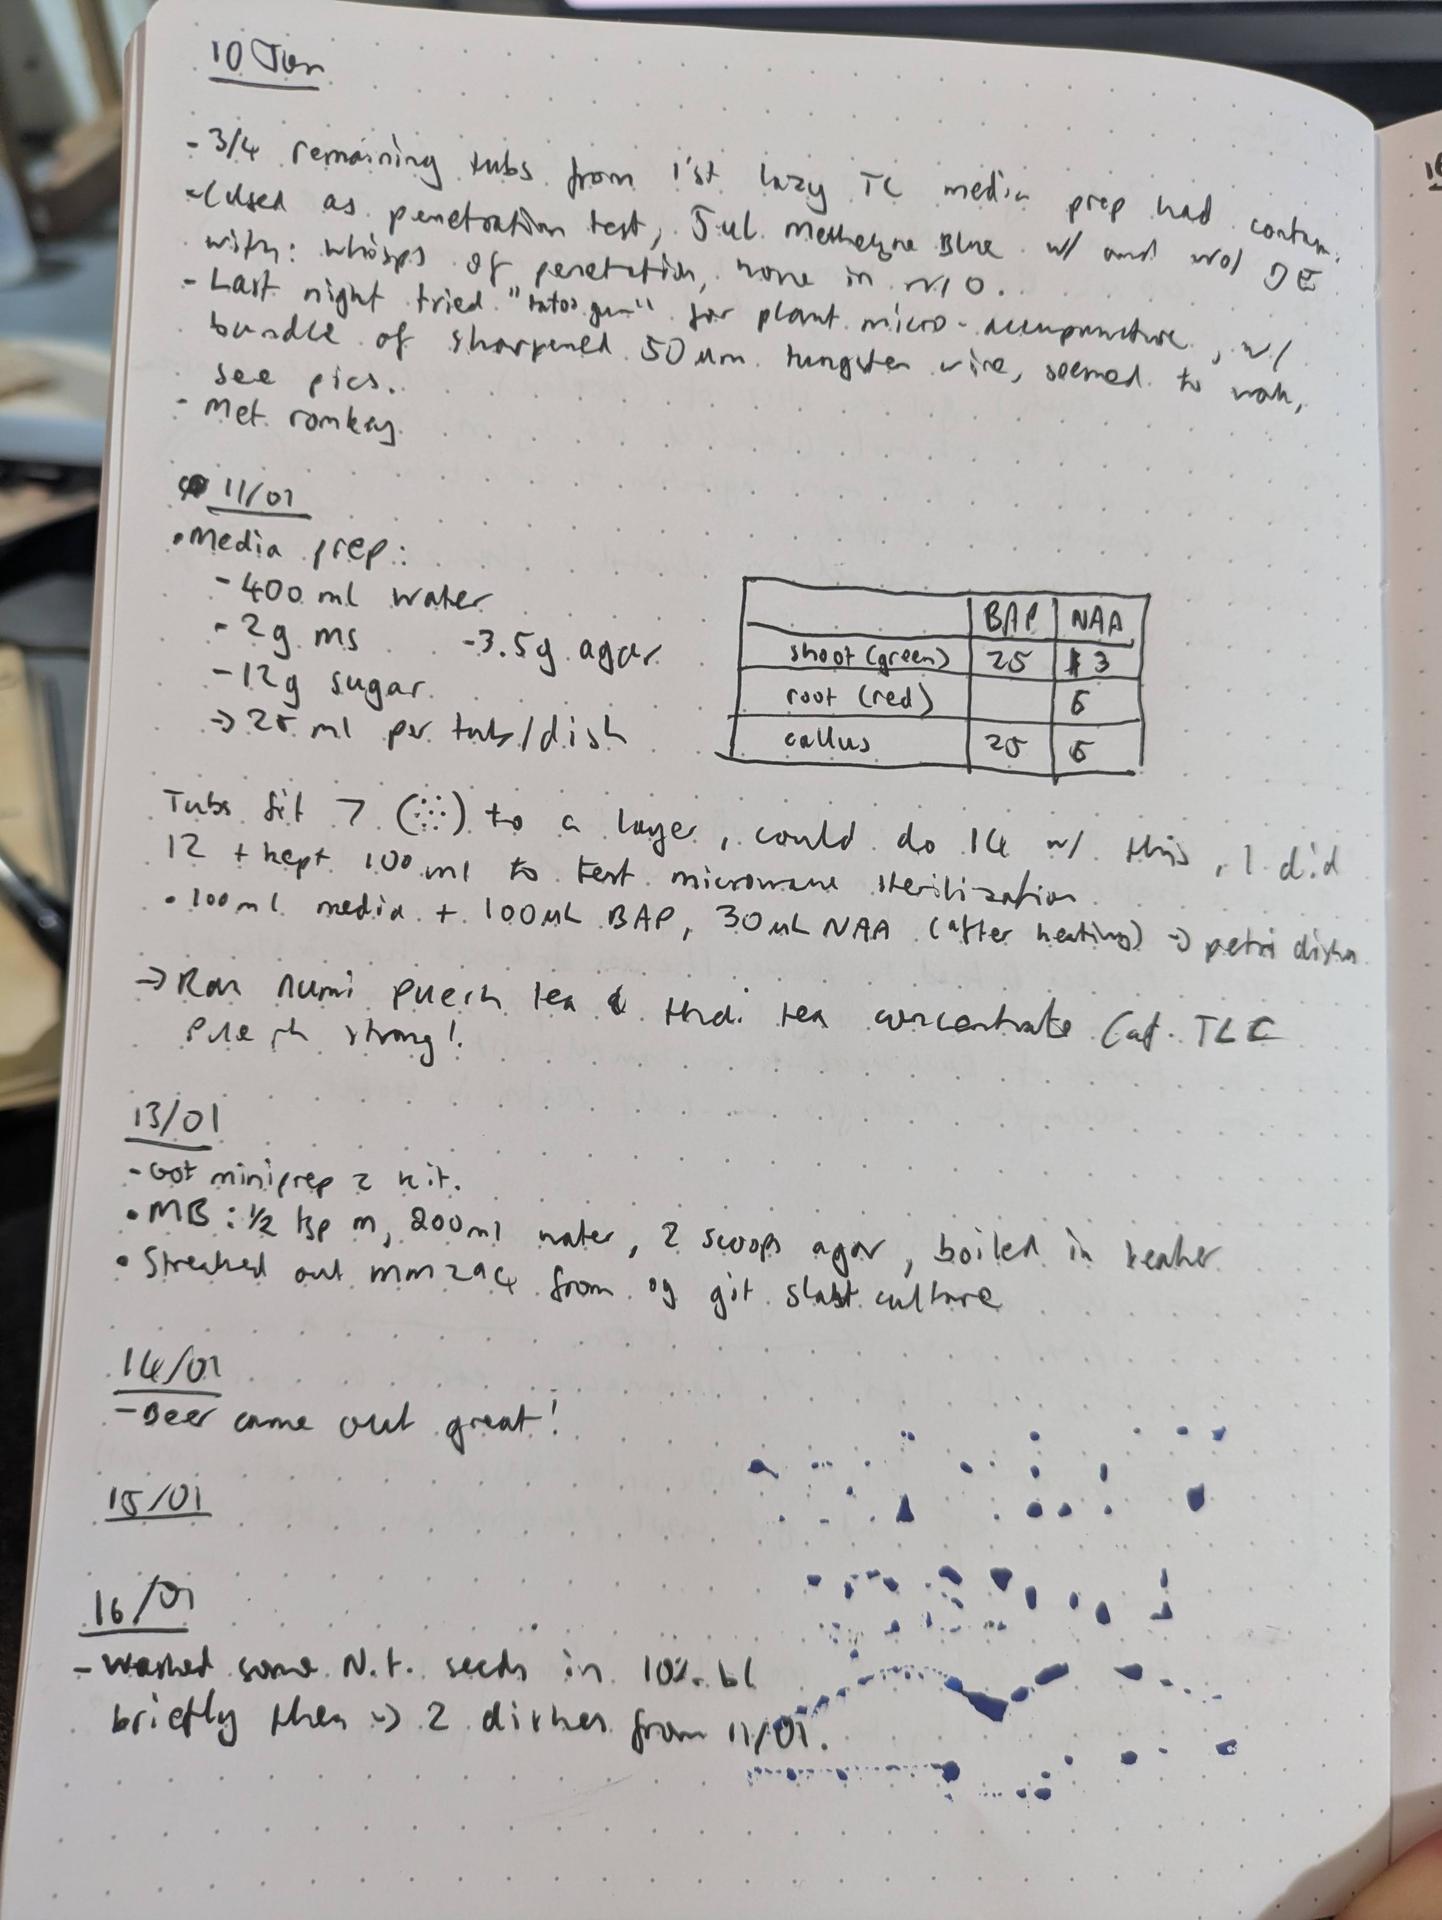 10 Jan
- 3/4 remaining tubs from 1st lazy TC media prep had contam.
- Used as penetration test, 5uL Methelyne Blue w/ and w/o DE
with: whisps of penetration, none in w/o.
- Last night tried "tatoo gun" for plant micro-accupuncture, w/
bundle of sharpened 50 um tungsten wire, seemed to work,
see pics.
- Met romkey
11/01
• Media prep:
- 400 ml water
- 2g ms -3.5g agar
- 12g sugar
→ 25 ml per tub/dish
BAP NAA
shoot (green) 25 3
root (red) 5
callus 25 5
Tubs fit 7 ( ) to a layer, could do 14 w/ this, I did
12 + kept 100 ml to test microwave sterilization
• 100ml media + 100uL BAP, 30uL NAA (after heating) → petri dishes
→ Ran numi puerh tea & thai tea concentrate Caf. TLC
Puerh strong!
13/01
- Got miniprep 2 kit.
• MB: 1/2 tsp m, 200ml water, 2 scoops agar, boiled in beaker
• Streaked out mm294 from og git stab culture
14/01
- Beer came out great!
15/01
16/01
- Washed some N.t. seeds in 10% bl
briefly then → 2 dishes from 11/01.